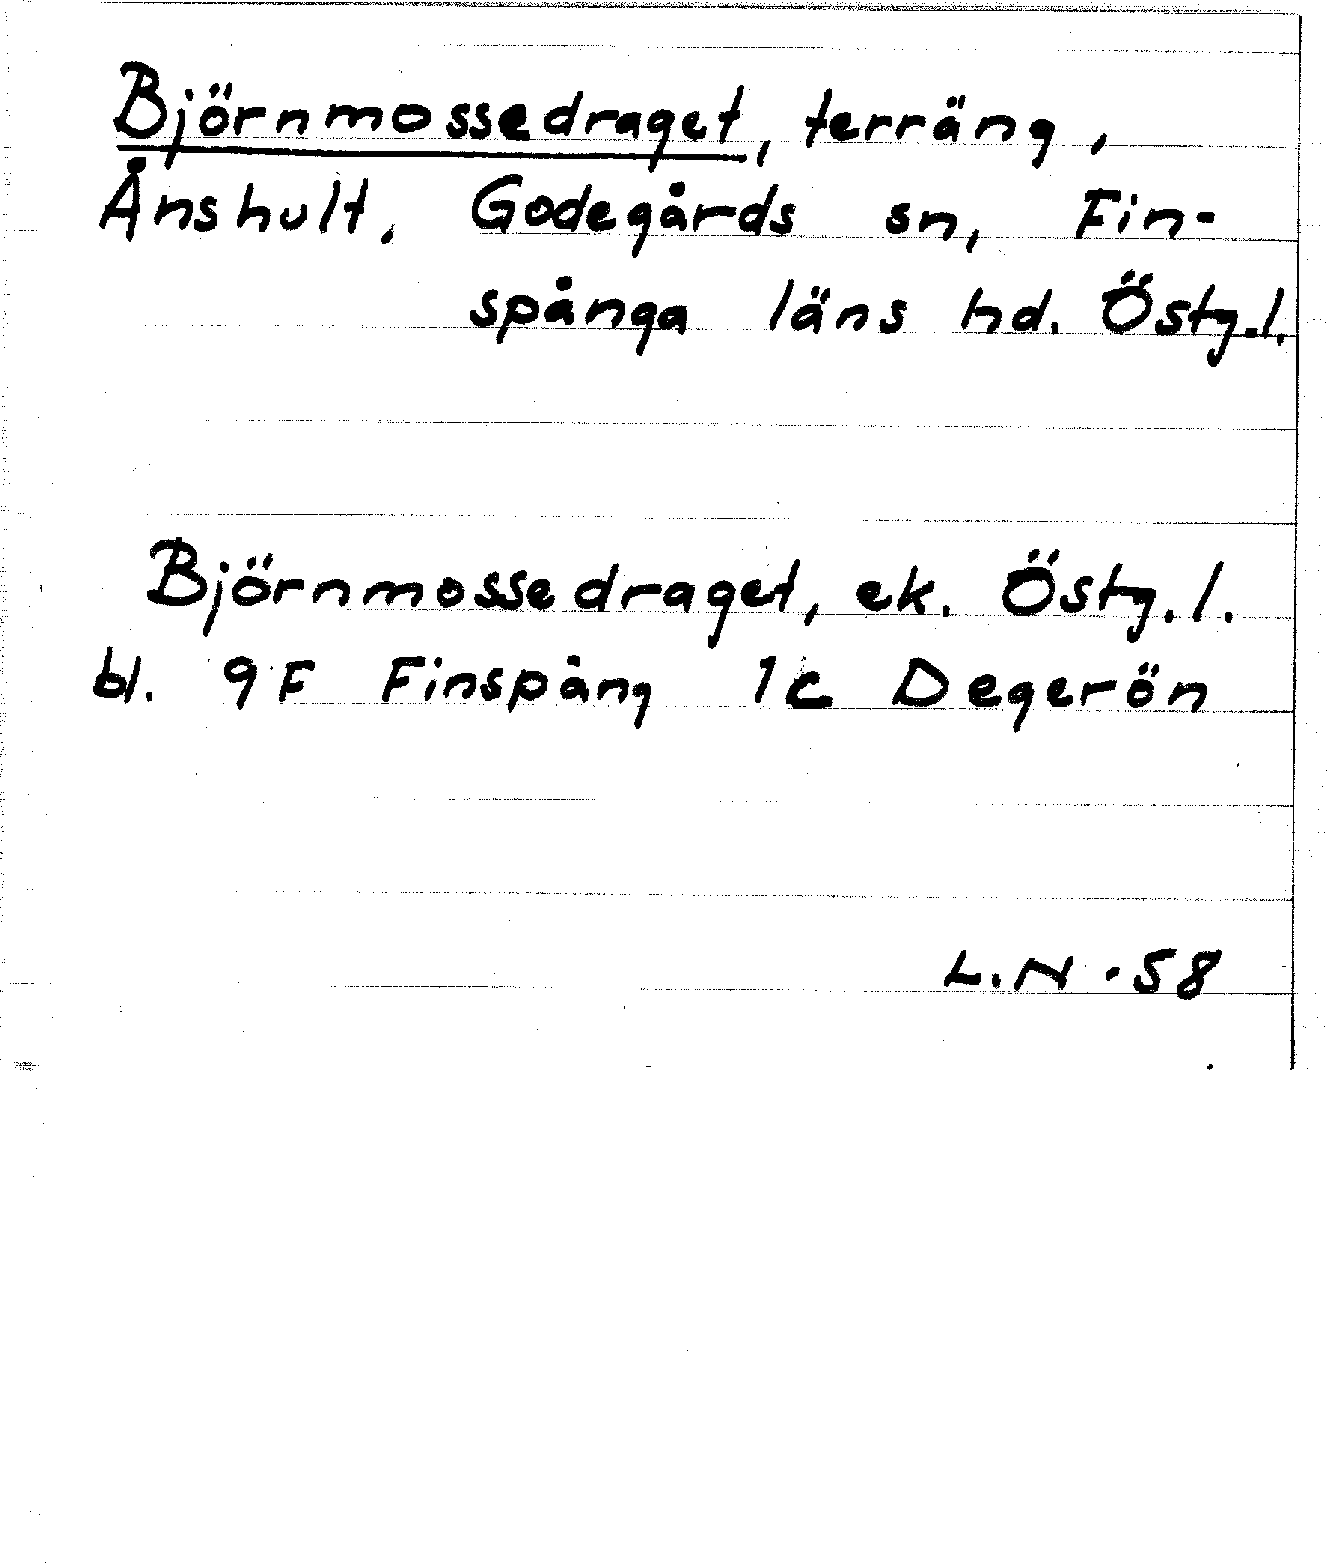 Björnmossedraget, terräng,
Ånshult. Godegårds sn, Fin-
spånga läns hd. Östg.l.
Björnmossedraget, ek. Östg.l.
bl. 9F Finspång 1c Degerön
L.N.58